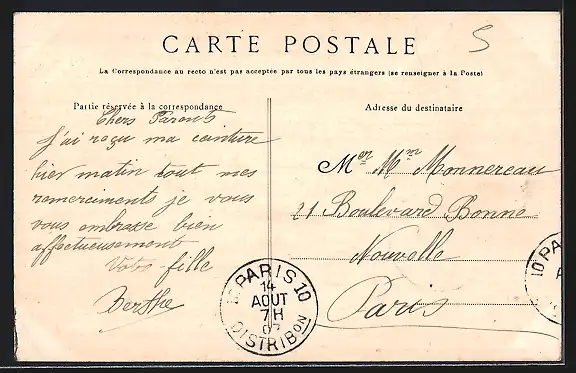 CARTE POSTALE
5
La Correspondance au recto n'est pas acceptée par tous les pays étrangers (se renseigner à la Poste)
Partie réservée à la correspondance
Adresse du destinataire
Chers Parents
j'ai reçu ma ceinture
hier matin tout mes
remerciments je vous
vous embrasse bien
affectueusement
Votre fille
Berthe
Mer Mme Monnereau
21 Boulevard Bonne
Nouvelle
Paris
PARIS 10
14
AOUT
7H
07
DISTRIBON
10 PA